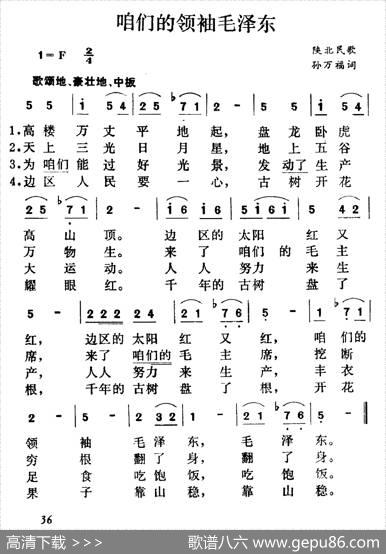 咱们的领袖毛泽东
1=F 2/4
陕北民歌
孙万福词
歌颂地、豪壮地、中板
5 5 | i 54 | 25 ♭71 | 2 - | 5 5 | i 54 |
1.高楼万丈平地起，盘龙卧虎
2.天上三光日月星，地上五谷
3.为咱们能过好光景，发动了生产
4.边区人民要一心，古树开花
25 ♭71 | 2 - | i6 i6 | 5 i6 | 5 42 |
高山顶。边区的太阳红又
万物生。来了咱们的毛主
大运动。人人努力来生
耀眼红。千年的古树盘了
5 - | 222 24 | 2 21 | ♭76 5 | i 21 |
红，边区的太阳红又红，咱们的
席，来了咱们的毛主席，挖断
产，人人努力来生产，丰衣
根，千年的古树盘了根，开花
2 - | 5 - | 2 32 | 1 - | 21 ♭76 | 5 - ‖
领袖毛泽东，毛泽东。
穷根翻了身，翻了身。
足食吃饱饭，吃饱饭。
果子靠山稳，靠山稳。
36
高清下载 @ 歌谱八六 www.gepu86.com